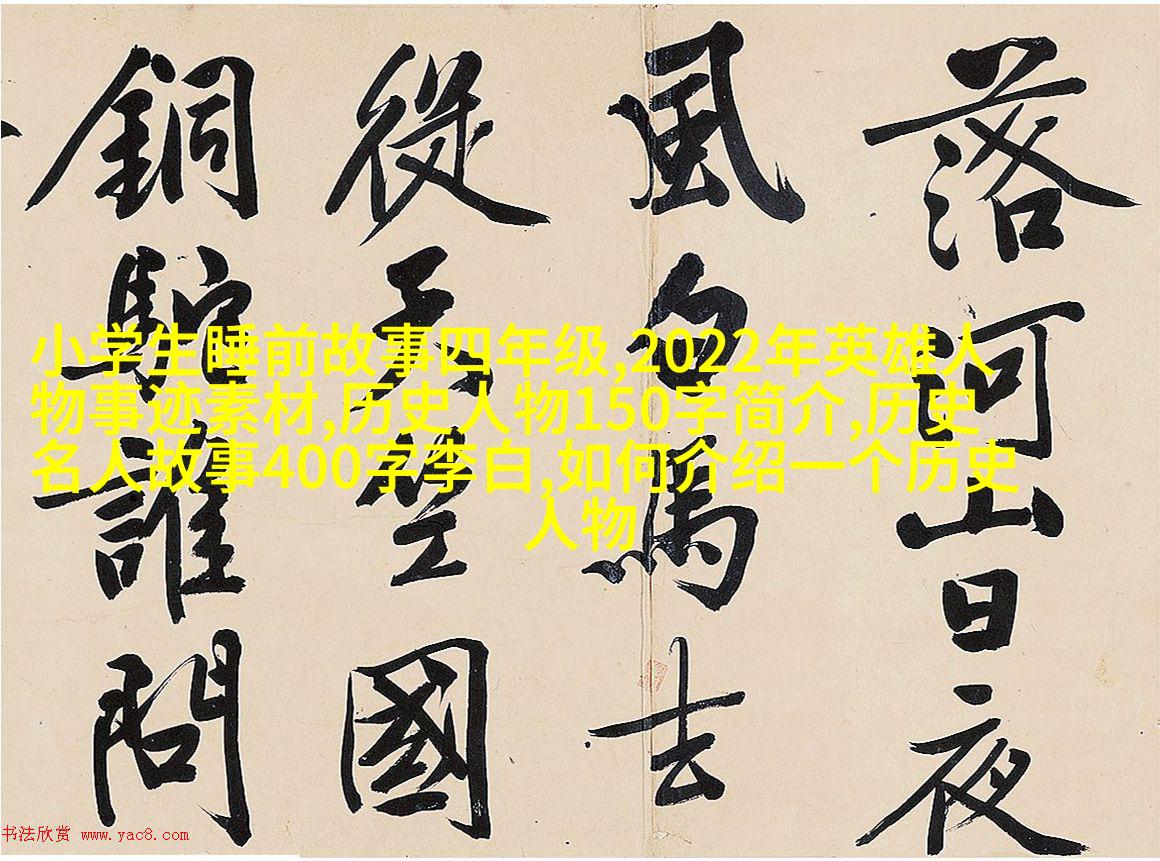 落河山日夜
風白馬去
從天竺國
銅駝誰問
小学生睡前故事四年级,2022年英雄人
物事迹素材,历史人物150字简介,历史
名人故事400字李白,如何介绍一个历史
人物
书法欣赏 www.yac8.com